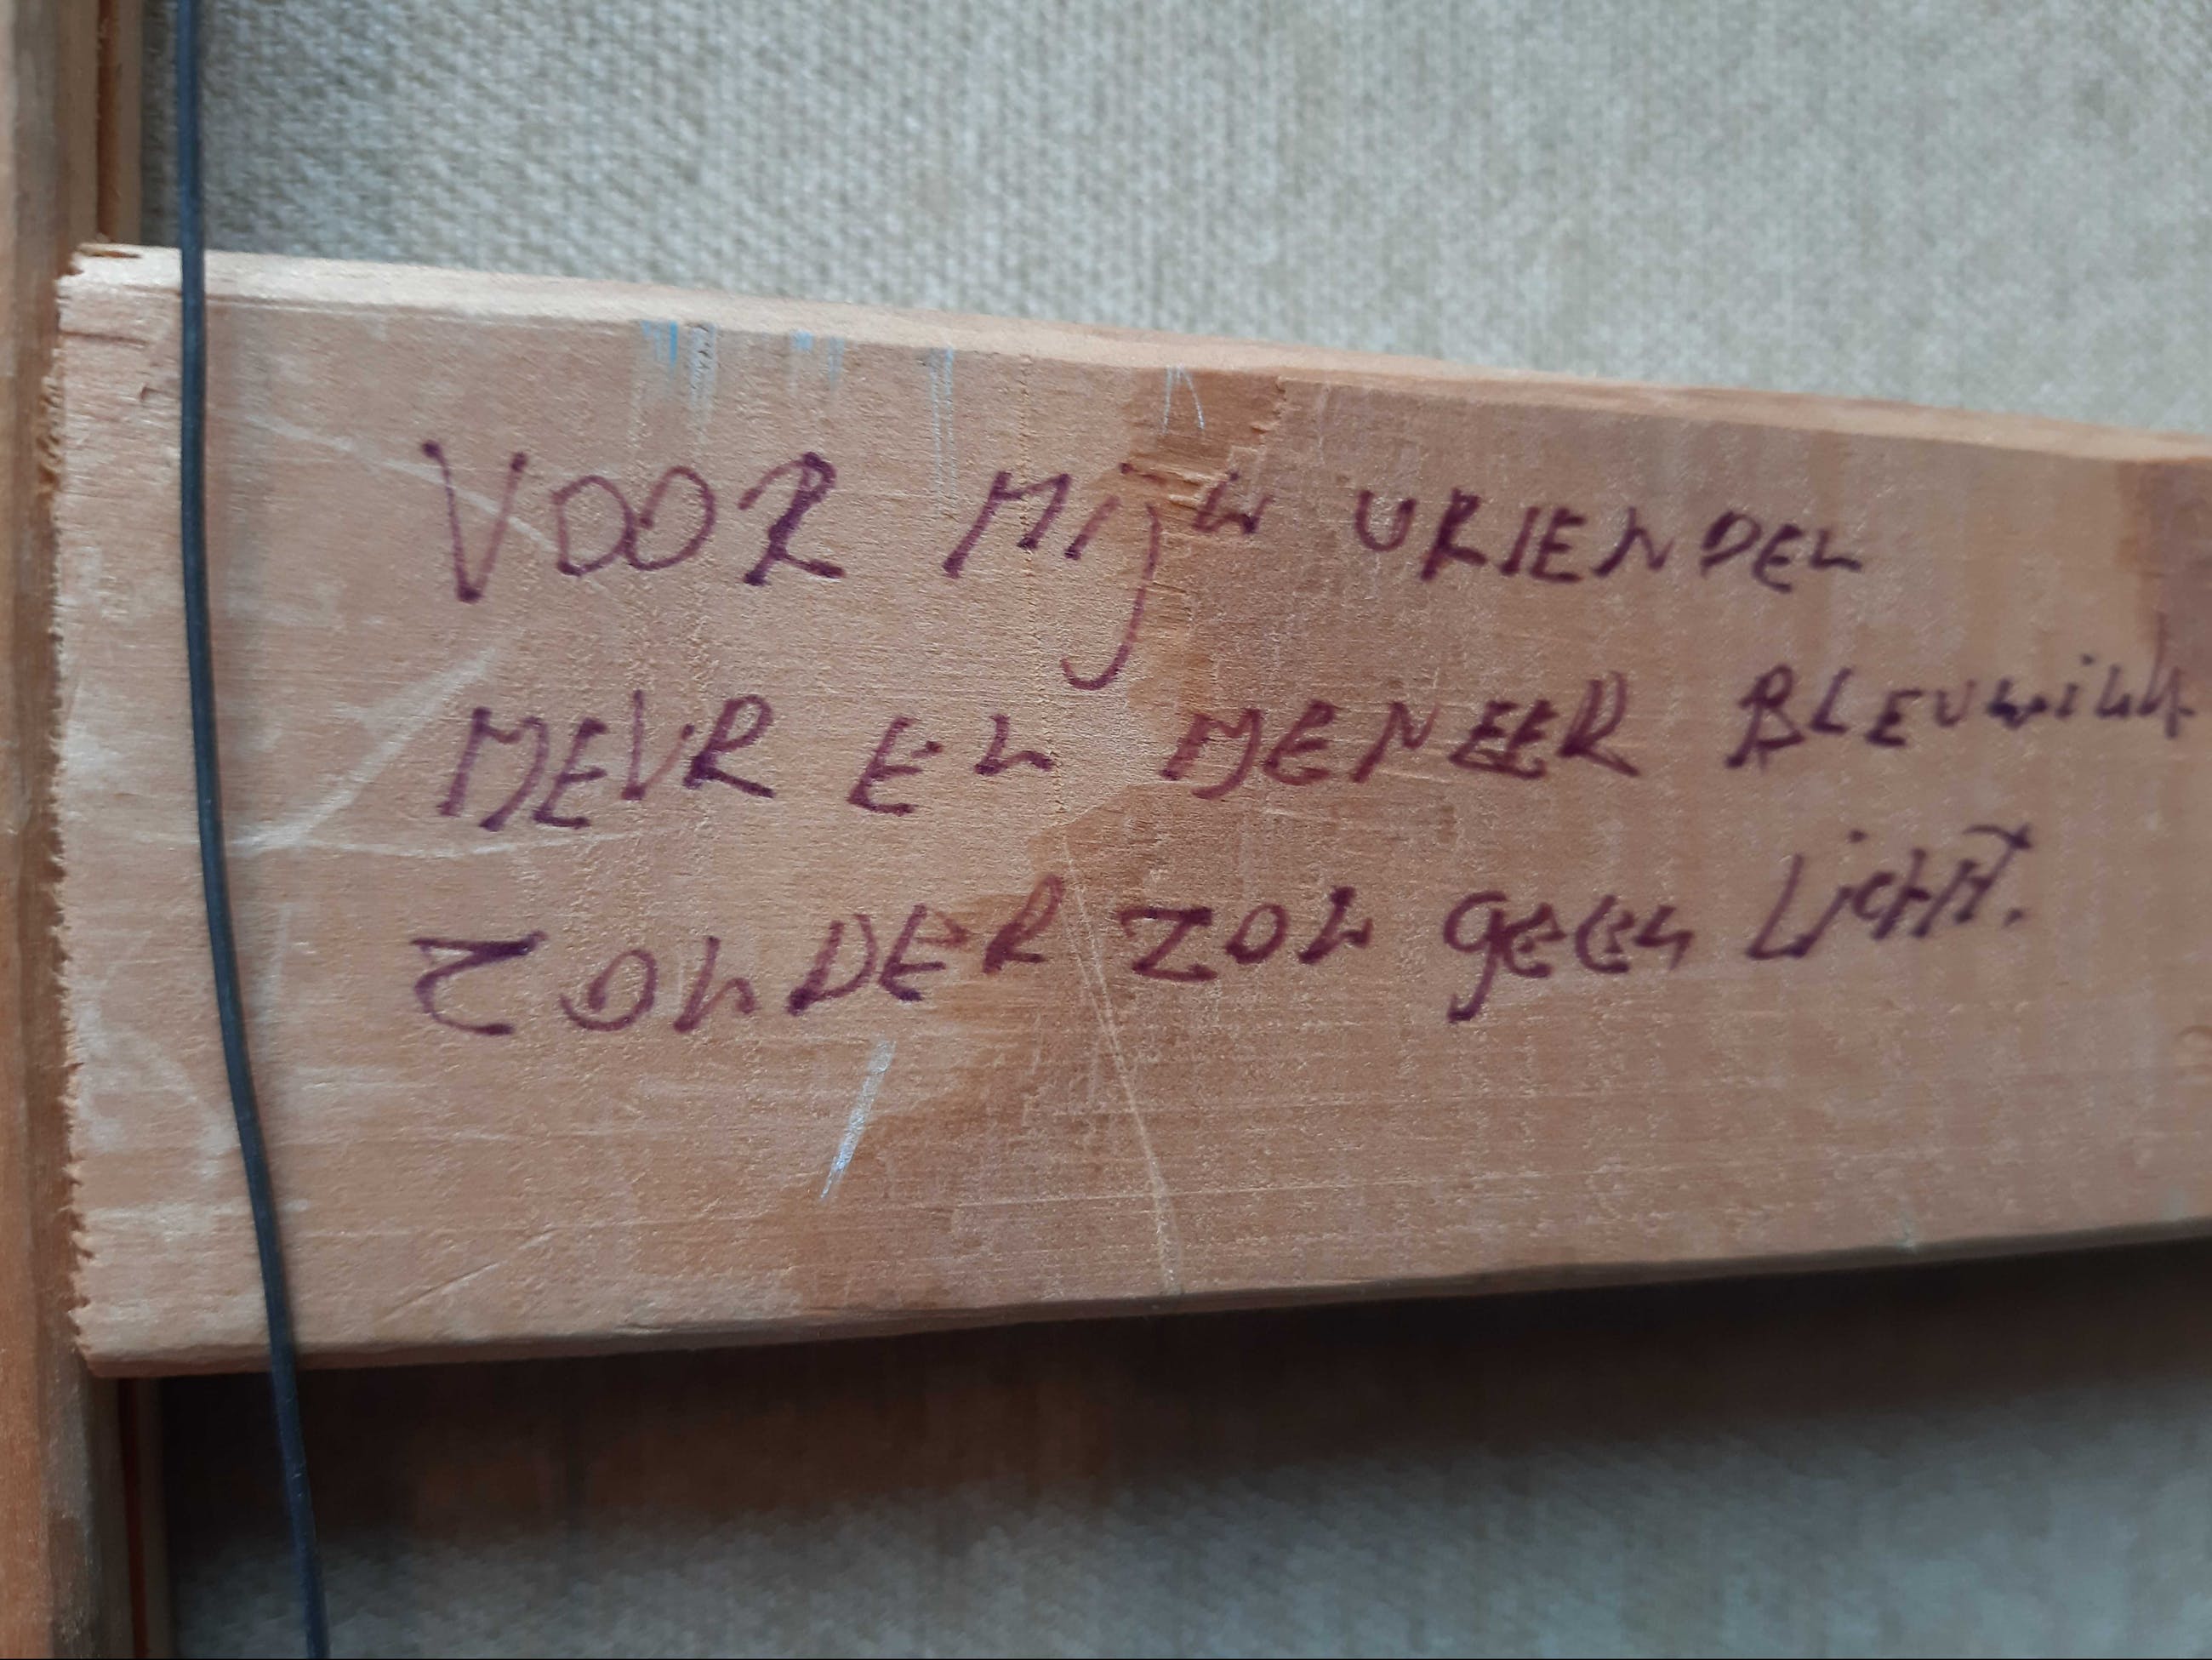 VOOR MijN VRIENDEN
MEVR EN MENEER
ZONDER ZON geeN LicHT.